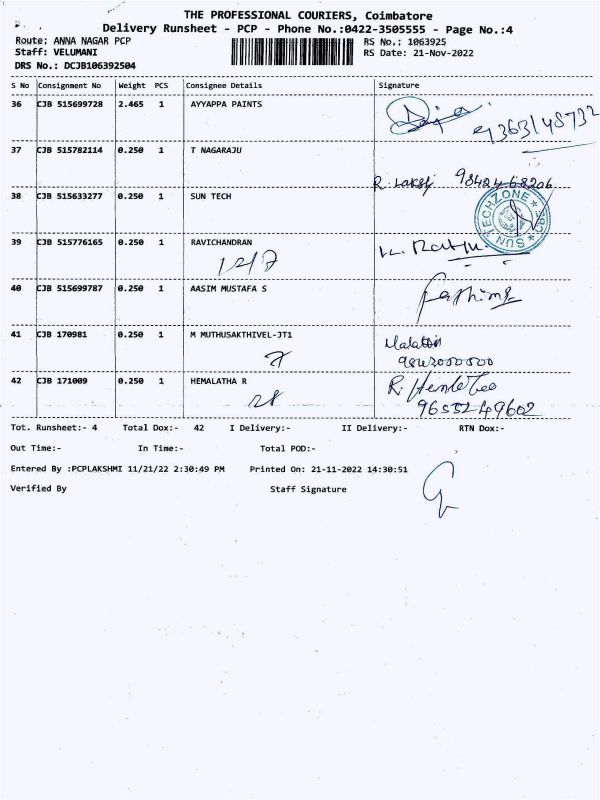 THE PROFESSIONAL COURIERS, Coimbatore
Delivery Runsheet - PCP - Phone No.:0422-3505555 - Page No.:4
Route: ANNA NAGAR PCP RS No.: 1063925
Staff: VELUMANI RS Date: 21-Nov-2022
DRS No.: DCJB106392504
S No Consignment No Weight PCS Consignee Details Signature
36 CJB 515699728 2.465 1 AYYAPPA PAINTS
9363148732
37 CJB 515782114 0.250 1 T NAGARAJU
R. Laksj 9842468206
38 CJB 515633277 0.250 1 SUN TECH
SUN TECHZONE * CBE *
39 CJB 515776165 0.250 1 RAVICHANDRAN
40 CJB 515699787 0.250 1 AASIM MUSTAFA S
Fathima
41 CJB 170981 0.250 1 M MUTHUSAKTHIVEL-JT1
42 CJB 171009 0.250 1 HEMALATHA R
9655249602
Tot. Runsheet:- 4 Total Dox:- 42 I Delivery:- II Delivery:- RTN Dox:-
Out Time:- In Time:- Total POD:-
Entered By :PCPLAKSHMI 11/21/22 2:30:49 PM Printed On: 21-11-2022 14:30:51
Verified By Staff Signature